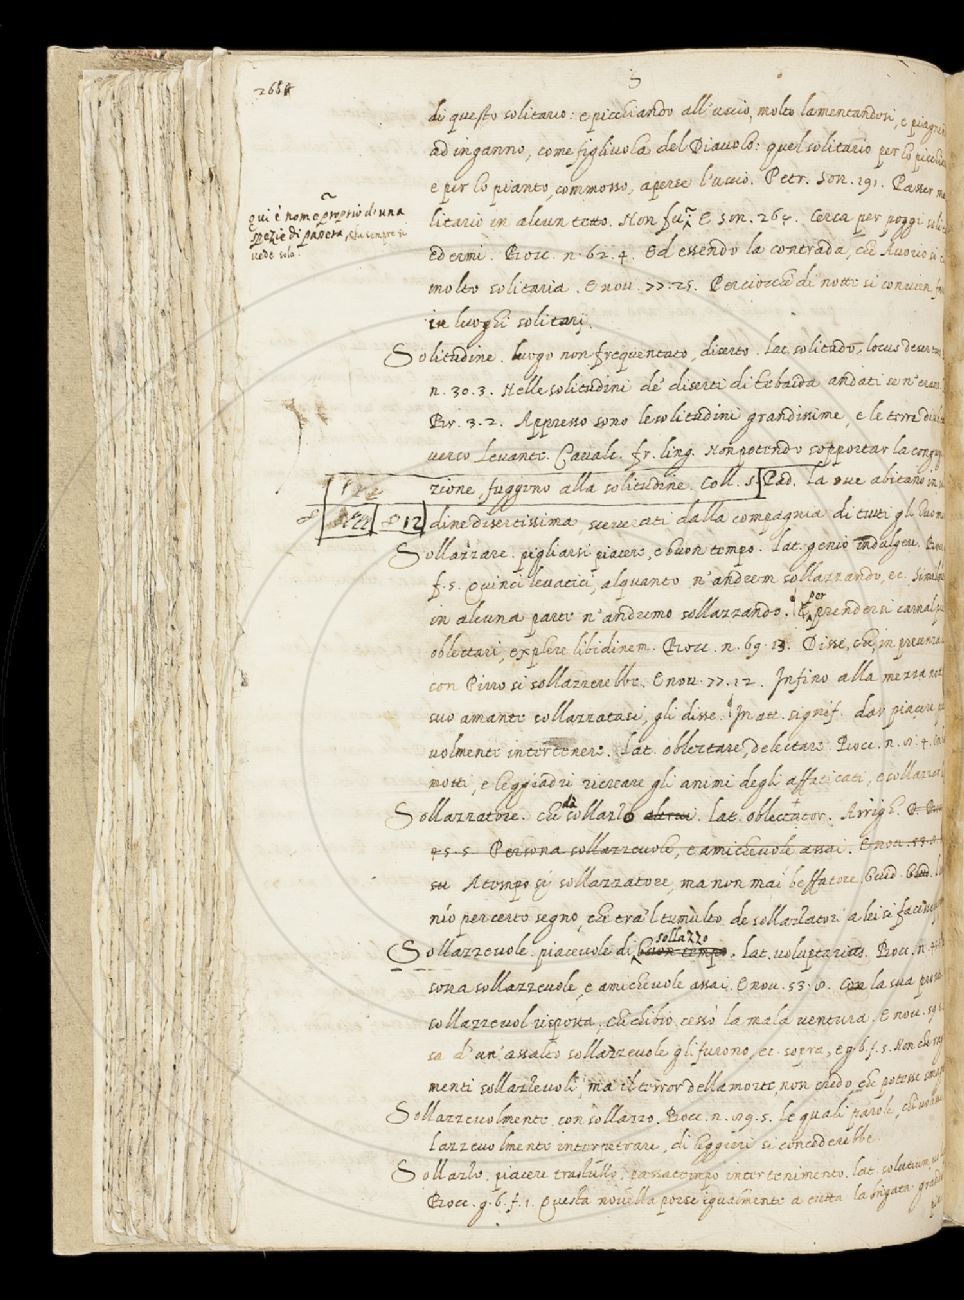 2664
S
di questo solitario: e picchiando all'uscio, molto lamentandosi, e
ad inganno, come figliuola del Diavolo: quel solitario per lo
e per lo pianto, commosso, aperse l'uscio. Petr. Son. 191. Passer
qui è nome proprio di una
spezie di passera, che sempre si
vede sola.
litario in alcun tetto. Non fu E son. 26 . Cerca per poggi
ed ermi. Bocc. n. 62. 4. Ed essendo la contrada, che Avorio si
molto solitaria. E nov. 77. 25. Perciocchè di notte si convien
in luoghi solitarj.
Solitudine. luogo non frequentato, diserto. lat. solitudo, locus
n. 30. 3. Nelle solitudini de' diserti di Tebaida andati se n'
Br. 3. 2. Appresso sono le solitudini grandissime, e le terre
verso Levante. Cavalc. fr. ling. Non potendo sopportar la
zione fuggono alla solitudine. Coll. S. Pad. la ove abitano in
12
dine disertissima, scevrati dalla compagnia di tutti gli
Sollazzare. pigliarsi piacere, e buon tempo. lat. genio indulgere.
f. 5. Quinci levatici, alquanto n'andrem sollazzando, ec.
in alcuna parte n'andremo sollazzando. E per prendersi carnal
oblectari, explere libidinem. Bocc. n. 69. 13. Disse, che in presenza
con Pirro si sollazzerebbe. E nov. 77. 12. Infino alla mezza
suo amante sollazzatasi, gli disse. In att. signif. dar piacere
volmente intertenere. lat. oblectare, delectare. Bocc. n. 4.
motti, e leggiadri ricreare gli animi degli affaticati, e
Sollazzatore. che dà sollazzo altrui. lat. oblectator. Arrigh.
45. 5. Persona sollazzevole, e amichevole assai. E nov. 53.
su A tempo sij sollazzatore, ma non mai beffatore.
nío per certo segno, che tra'l tumulto de sollazzatori a lei si
Sollazzevole. piacevole di buon tempo sollazzo. lat. voluptarius. Bocc. n.
sona sollazzevole, e amichevole assai. E nov. 53. 8. Con la sua
sollazzevol risposta, cessò la mala ventura. E nov. 59.
sa d'un' assalto sollazzevole gli furono, ec. sopra, e g. 6. f. 5. Non che
menti sollazzevoli, ma il terror della morte, non credo, che potesse
Sollazzevolmente. con sollazzo. Bocc. n. 89. 5. le quali parole, chi
lazzevolmente interpetrare, di leggieri si concederebbe.
Sollazzo. piacere trastullo, passatempo intertenimento. lat. solatium,
Bocc. g. 6. f. 1. Questa novella porse igualmente a tutta la brigata